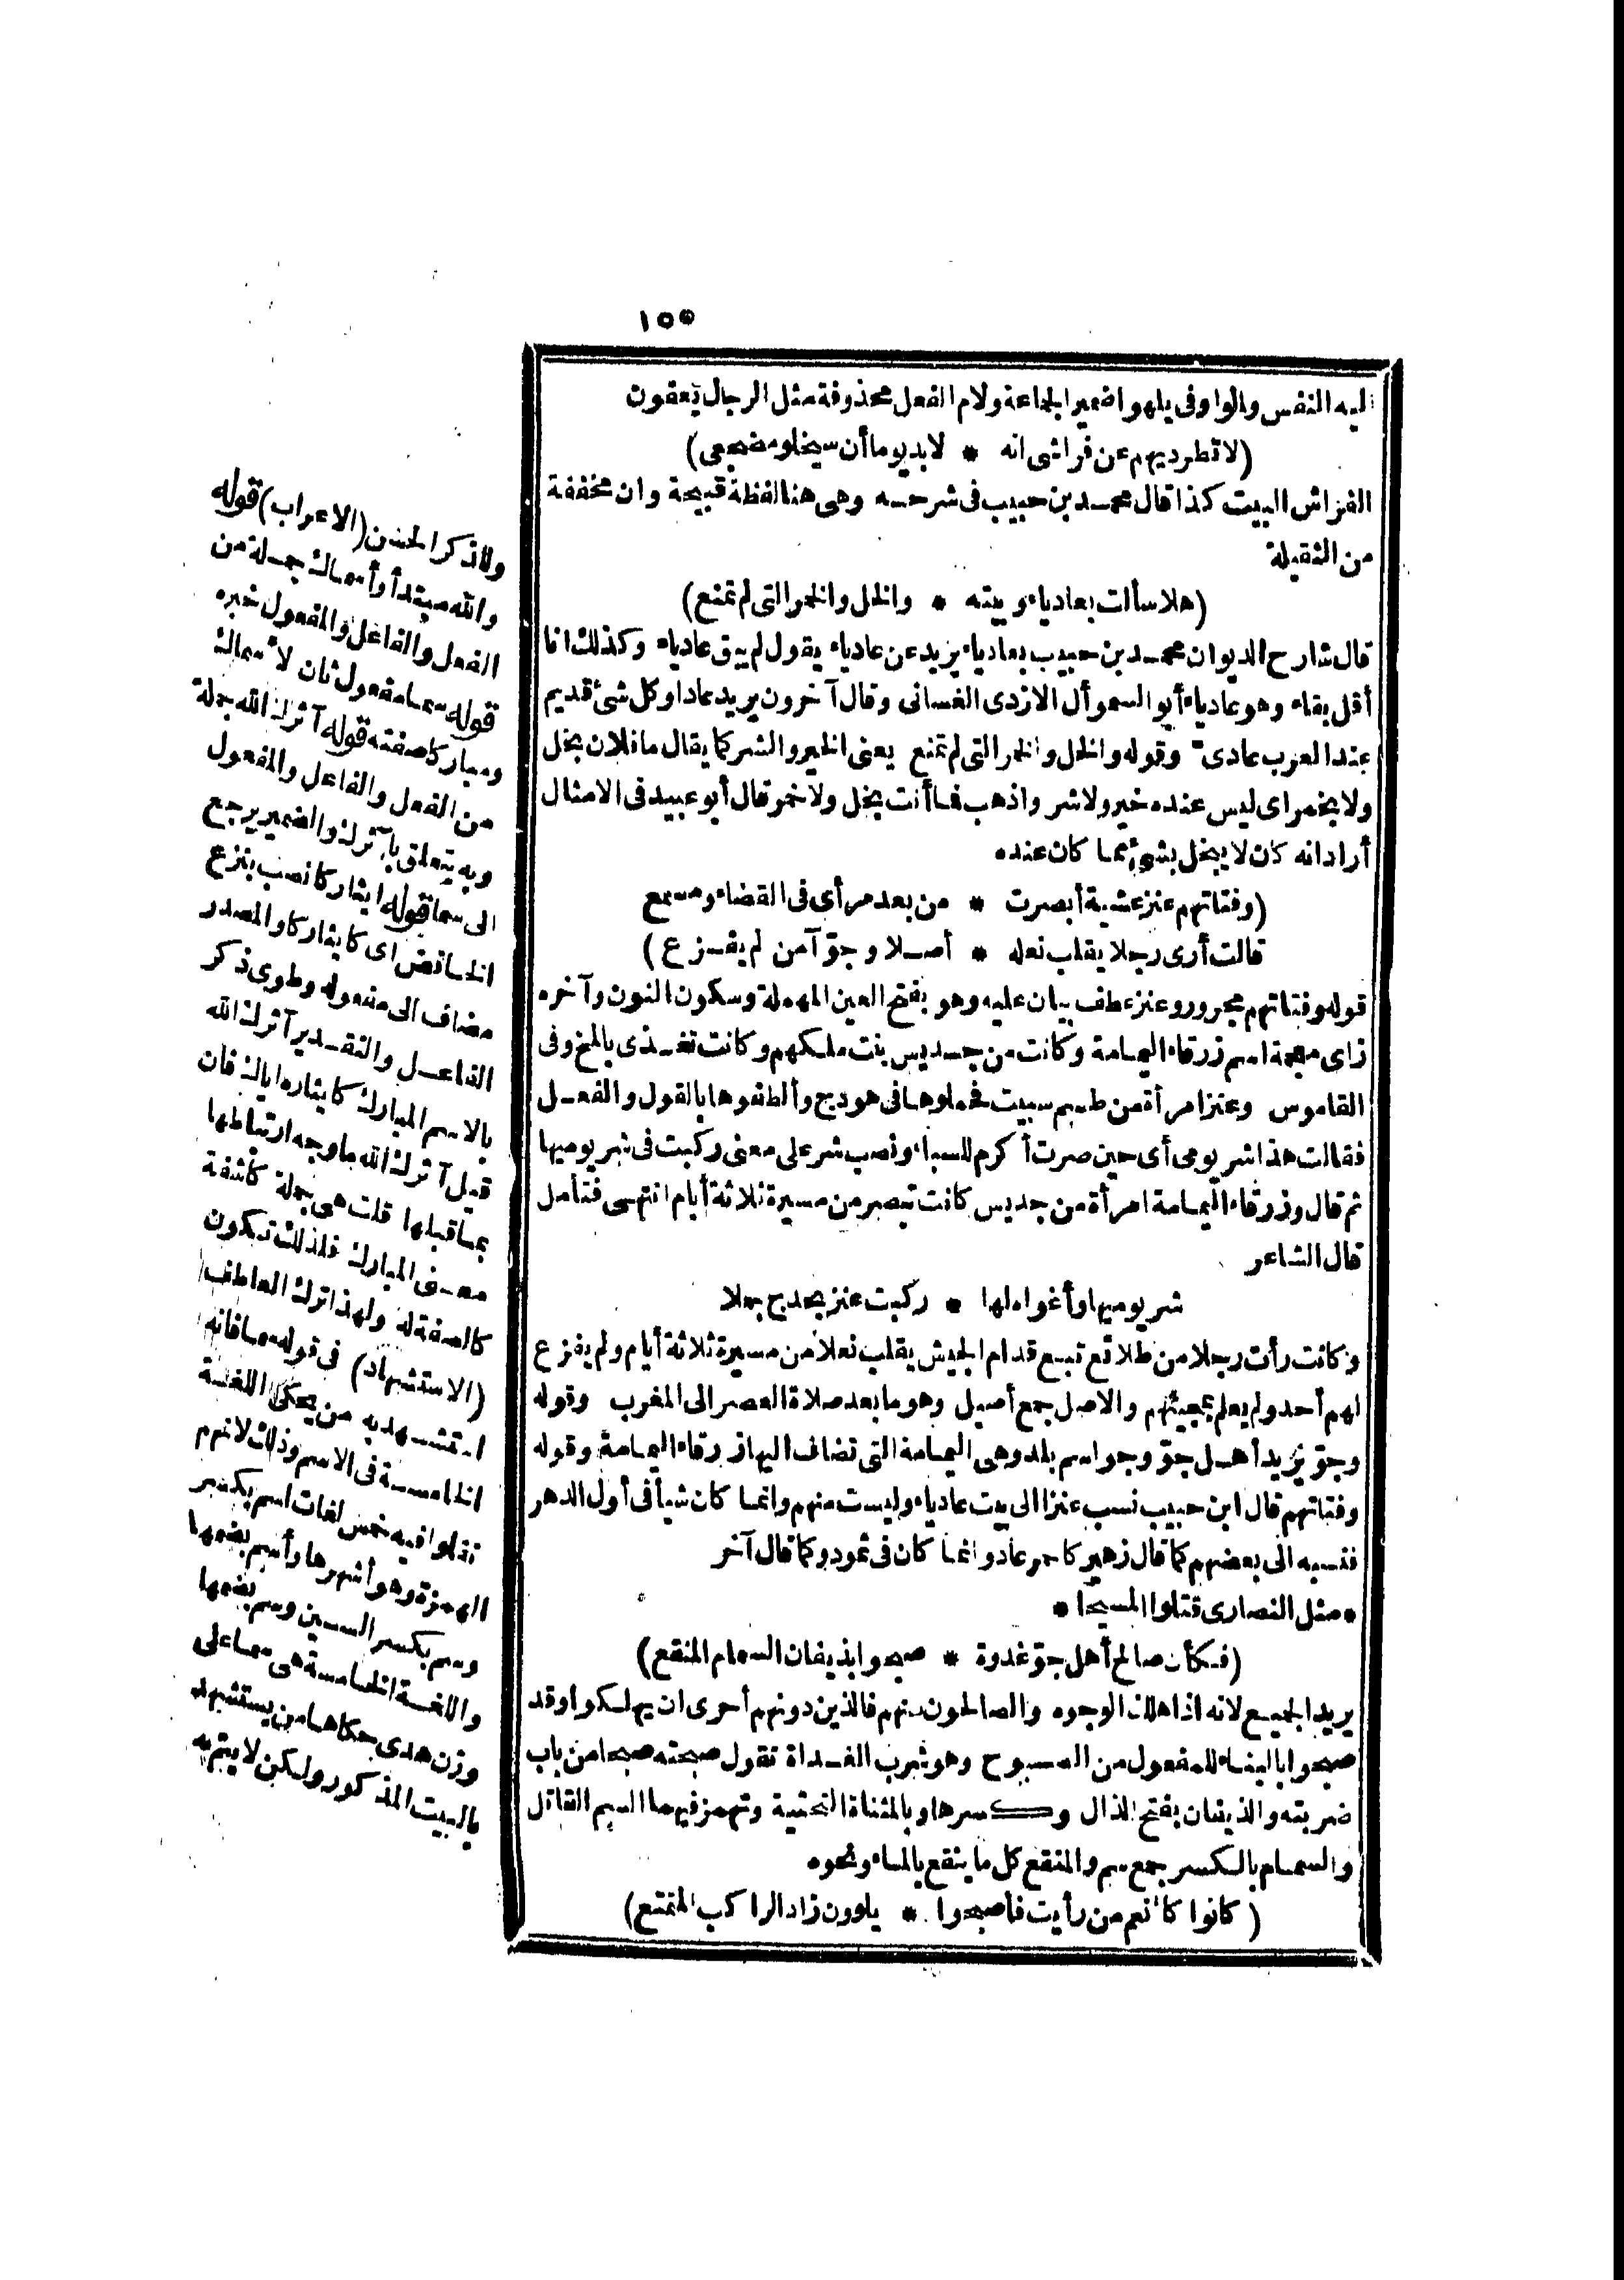 ١٥٥
اليه النفس والواو فى يلهوا ضمير الجماعة ولام الفعل محذوفة مثل الرجال يعفون
(لا تطرديهم عن فراشى انه * لابد يوما أن سيخلو مضجعى)
الفراش البيت كذا قال محمد بن حبيب فى شرحه وهى هنا لفظة قبيحة وان مخففة
من الثقيلة
(هلا سألت بعادياء وبيته * والخل والخمر التى لم تمنع)
قال شارح الديوان محمد بن حبيب بعادياء يريد عن عادياء يقول لم يبق عادياء وكذلك انا
أقل بقاء وهو عادياء أبو السموأل الازدى الغسانى وقال آخرون يريد عادا وكل شئ قديم
عند العرب عادى وقوله والخل والخمر التى لم تمنع يعنى الخير والشر كما يقال ما فلان بخل
ولا بخمر اى ليس عنده خير ولا شر واذهب فما أنت بخل ولا خمر قال أبو عبيد فى الامثال
أراد انه كان لا يبخل بشئ مما كان عنده
(وفتاتهم عنز عشية أبصرت * من بعد مرأى فى القضاء ومسمع
قالت أرى رجلا يقلب نعله * أصلا وجوّ آمن لم يفزع)
قوله وفتاتهم مجرور وعنز عطف بيان عليه وهو بفتح العين المهملة وسكون النون وآخره
زاى معجمة اسم زرقاء اليمامة وكانت من جديس بنت ملكهم وكانت تغذى بالمخ وفى
القاموس وعنز امرأة من طسم سبيت فحملوها فى هودج وألطفوها بالقول والفعل
فقالت هذا شر يومى أى حين صرت أكرم للسباء ونصب شر على معنى ركبت فى شر يوميها
ثم قال وزرقاء اليمامة امرأة من جديس كانت تبصر من مسيرة ثلاثة أيام انتهى فتأمل
قال الشاعر
شر يوميها وأغواه لها * ركبت عنز بحدج جملا
وكانت رأت رجلا من طلائع تبع قدام الجيش يقلب نعلا من مسيرة ثلاثة أيام ولم يفزع
لهم أحد ولم يعلم بمجيئهم والاصل جمع أصيل وهو ما بعد صلاة العصر الى المغرب وقوله
وجوّ يريد أهل جوّ وجو اسم بلد وهى اليمامة التى تضاف اليها زرقاء اليمامة وقوله
وفتاتهم قال ابن حبيب نسب عنزا الى بيت عادياء وليست منهم وانما كان شيأ فى أول الدهر
فنسبه الى بعضهم كما قال زهير كاحمر عاد وانما كان فى ثمود وكما قال آخر
* مثل النصارى قتلوا المسيحا *
(فكأن صالح أهل جوّ غدوة * صبحوا بذيفان السمام المنقع)
يريد الجميع لانه اذا هلك الوجوه والصالحون منهم فالذين دونهم أحرى ان يهلكوا وقد
صبحوا بالبناء للمفعول من الصبوح وهو شرب الغداة تقول صبحته صبحا من باب
ضربته والذيفان بفتح الذال وكسرها وبالمثناة التحتية وتهمز فيهما السم القاتل
والسمام بالكسر جمع سم والمنقع كل ما ينقع بالماء ونحوه
(كانوا كأنعم من رأيت فأصبحوا * يلوون زاد الراكب المتمتع)
ولاذكر الحنن (الاعراب) قوله
والله مبتدأ وأسماك جملة من
الفعل والفاعل والمفعول خبره
قوله سما مفعول ثان لأسماك
ومباركا صفته قوله آثرك الله جملة
من الفعل والفاعل والمفعول
وبه يتعلق بآثرك والضمير يرجع
الى سما قوله ايثاركا نصب بنزع
الخافض اى كايثاركا والمصدر
مضاف الى مفعوله وطوى ذكر
الفاعل والتقدير آثرك الله
بالاسم المبارك كايثاره اياك فان
قيل آثرك الله ما وجه ارتباطها
بما قبلها قلت هى جملة كاشفة
معنى المبارك فلذلك تكون
كالصفة له ولهذا ترك العاطف
(الاستشهاد) فى قوله سما فانه
استشهد به من يحكى اللغة
الخامسة فى الاسم وذلك لانهم
نقلوا فيه خمس لغات اسم بكسر
الهمزة وهو أشهرها وأسم بضمها
وسم بكسر السين وسم بضمها
واللغة الخامسة هى سما على
وزن هدى حكاها من يستشهد
بالبيت المذكور ولكن لا يتم به